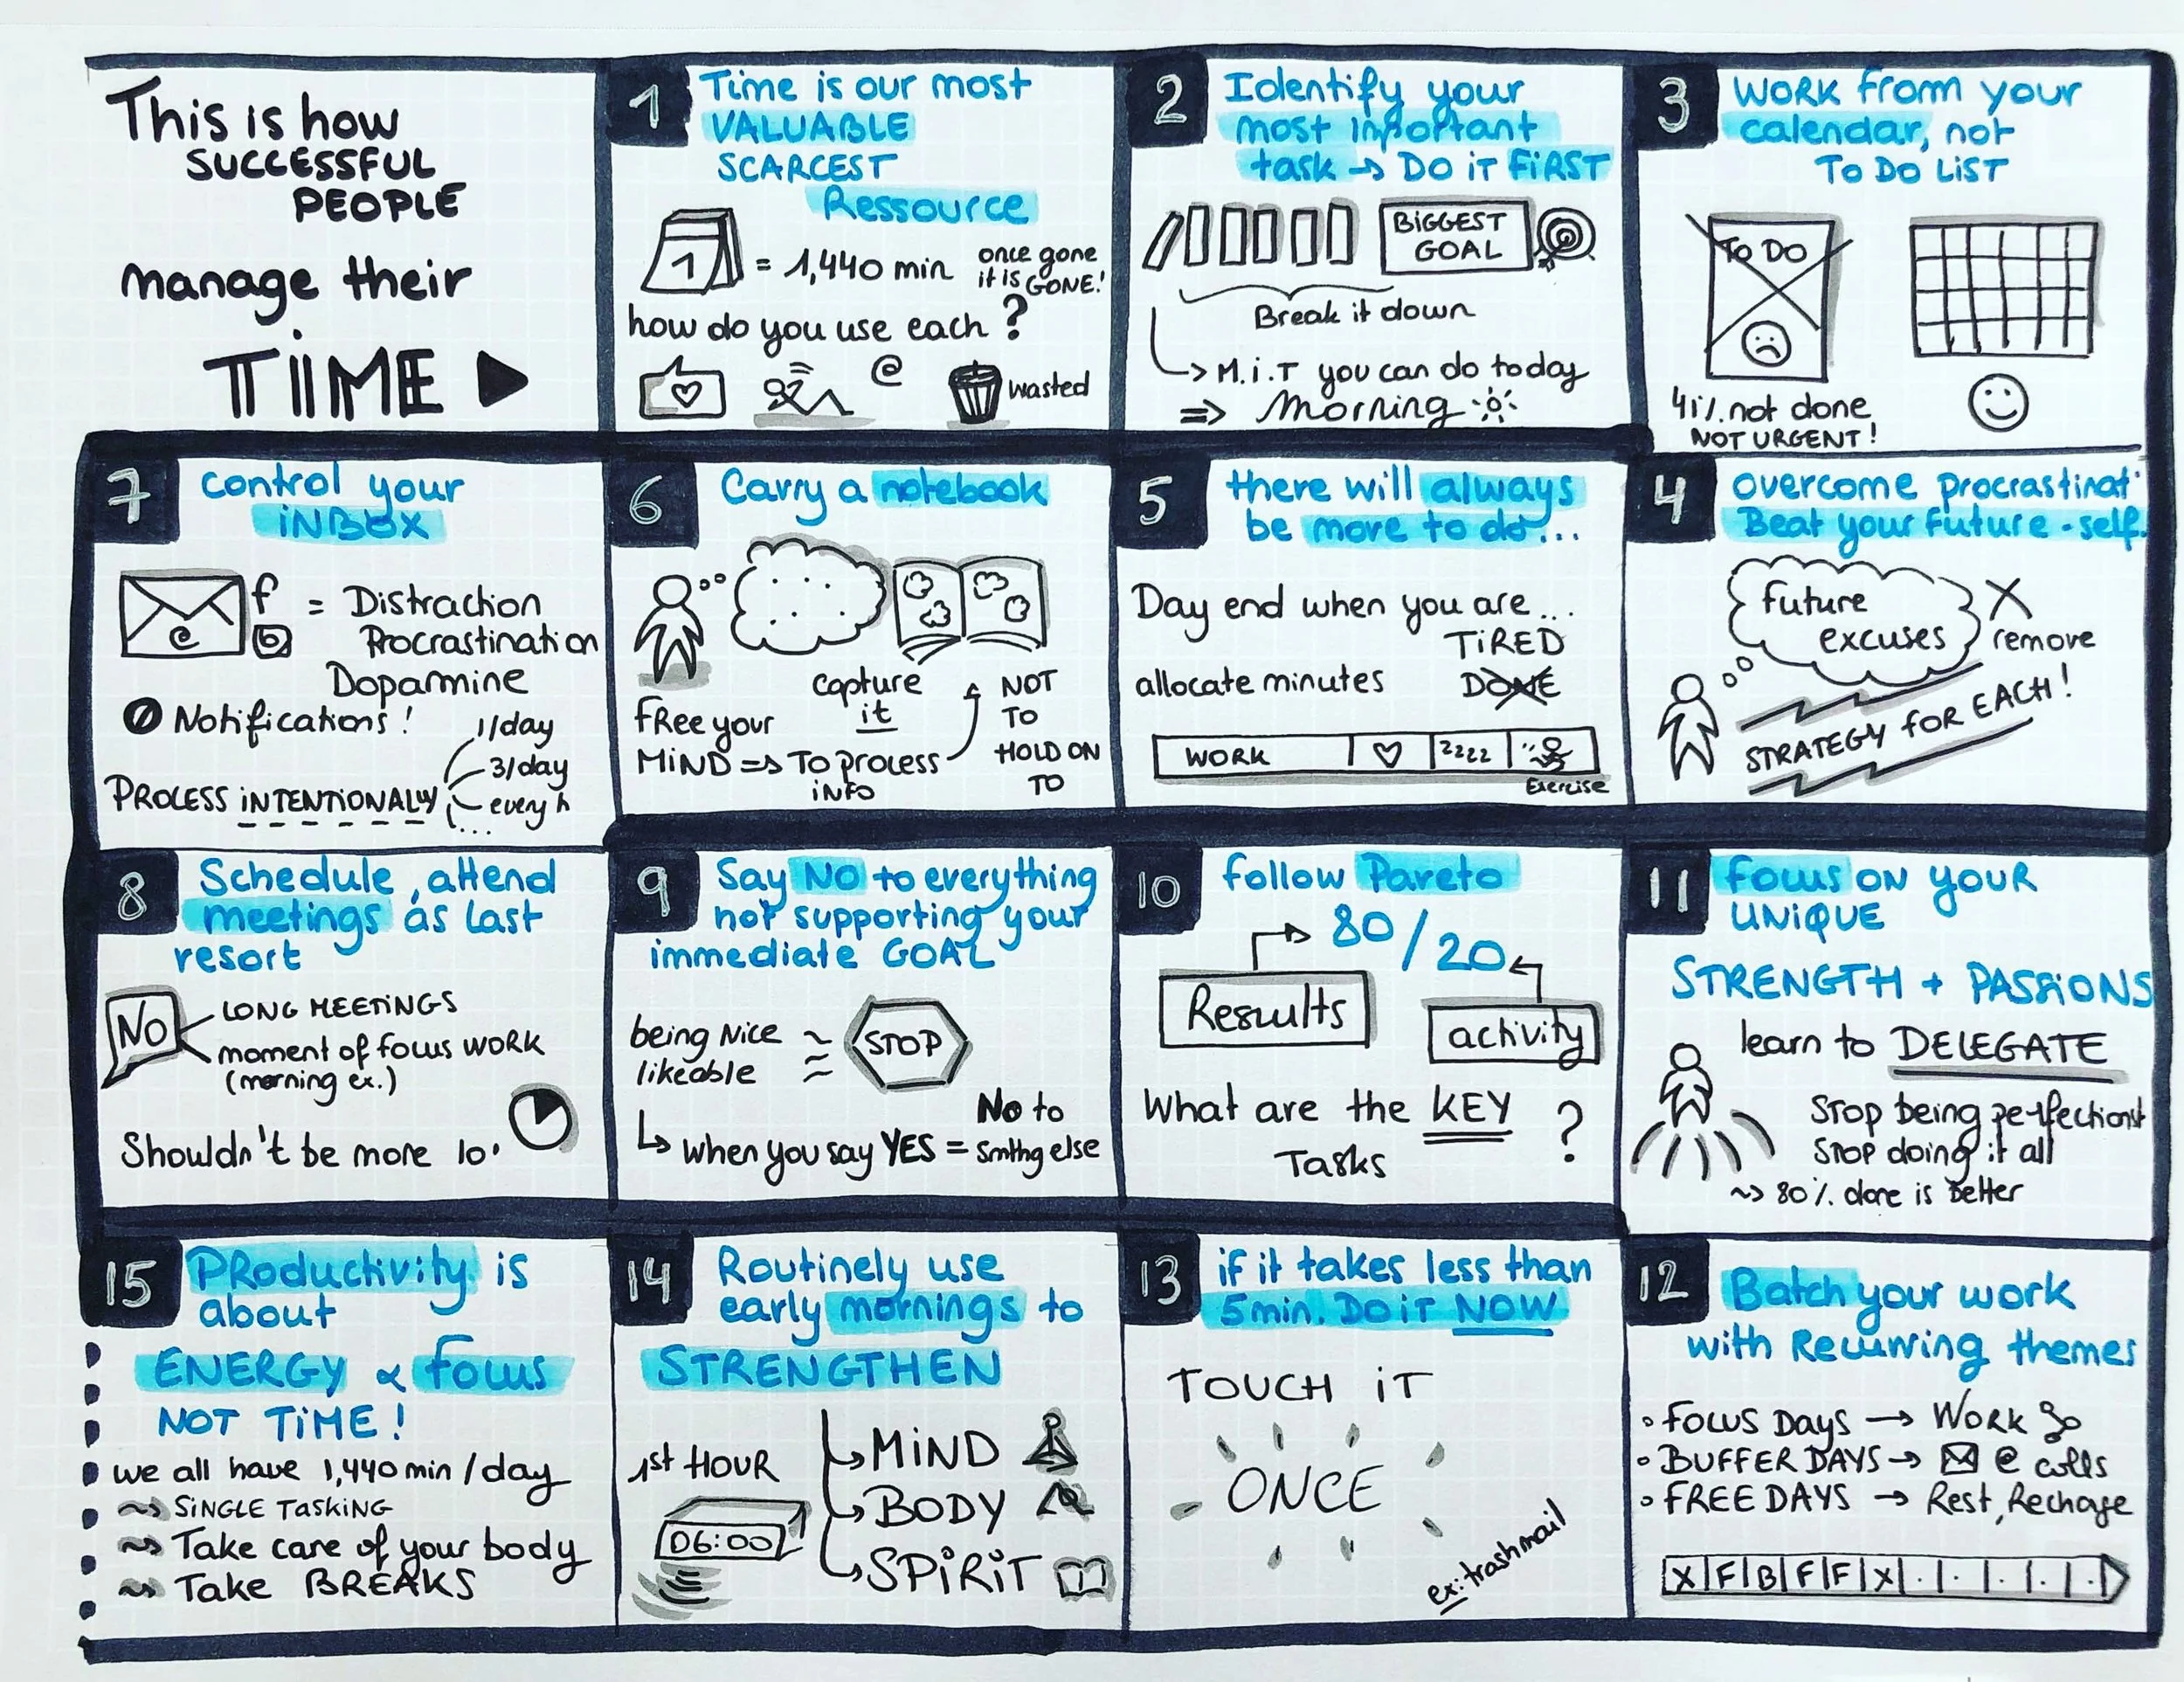 This is how
SUCCESSFUL
PEOPLE
manage their
TIME
1
Time is our most
VALUABLE
SCARCEST
Ressource
1
= 1,440 min
once gone
it is GONE!
how do you use each ?
@
wasted
2
Identify your
most important
task → DO iT FiRST
BiGGEST
GOAL
Break it down
→ M.i.T you can do today
⇒ Morning
3
WORK from your
calendar, not
TO DO LiST
TO DO
41% not done
NOT URGENT!
4
overcome procrastinat
Beat your future-self.
future
excuses
X
remove
STRATEGY FOR EACH!
5
there will always
be more to do...
Day end when you are...
TiRED
allocate minutes
DONE
WORK
zzzz
Exercise
6
Carry a notebook
capture
it
free your
MiND ⇒ To process
iNFO
NOT
TO
HOLD ON
TO
7
control your
iNBOX
@
f
= Distraction
Procrastination
Dopamine
Notifications!
1/day
3/day
every h
...
PROCESS iNTENTiONALLY
8
Schedule, attend
meetings as last
resort
NO
LONG MEETiNGS
moment of focus WORK
(morning ex.)
Shouldn't be more 10'
9
Say NO to everything
not supporting your
immediate GOAL
being Nice
likeable
STOP
No to
when you say YES = Smthg else
10
follow Pareto
80/20
Results
activity
What are the KEY
Tasks
?
11
Focus ON YOUR
UNiQUE
STRENGTH + PASSiONS
learn to DELEGATE
Stop being perfectionist
Stop doing it all
~> 80% done is better
12
Batch your work
with Recurring themes
FOCUS DAYS → WORK
BUFFER DAYS → @ calls
FREE DAYS → Rest, Rechage
X|F|B|F|F|X|.|.|.|.|.
13
if it takes less than
5 min. DO iT NOW
TOUCH iT
ONCE
ex: trash mail
14
Routinely use
early mornings to
STRENGTHEN
1st HOUR
06:00
MiND
BODY
SPiRiT
15
PRoductivity is
about
ENERGY & focus
NOT TiME!
we all have 1,440 min/day
~> SiNGLE TASKiNG
~> Take care of your body
~> Take BREAKS